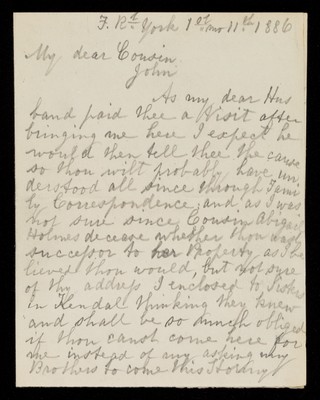 F. Rt. York 1st mo 11th 1886
My dear Cousin
John
As my dear Hus
band paid thee a Visit after
bringing me here I expect he
would then tell thee the cause
so thou wilt probably have un
derstood all since through Fami
ly Correspondence, and as I was
not sure since Cousin Abigail
Holmes decease whether thou wast
successor to her Property as I be
lieved thou would, but not sure
of thy address I enclosed to Sisters
in Kendal thinking they knew
and shall be so much obliged
if thou canst come here for
me instead of my asking my
Brothers to come this Stormy